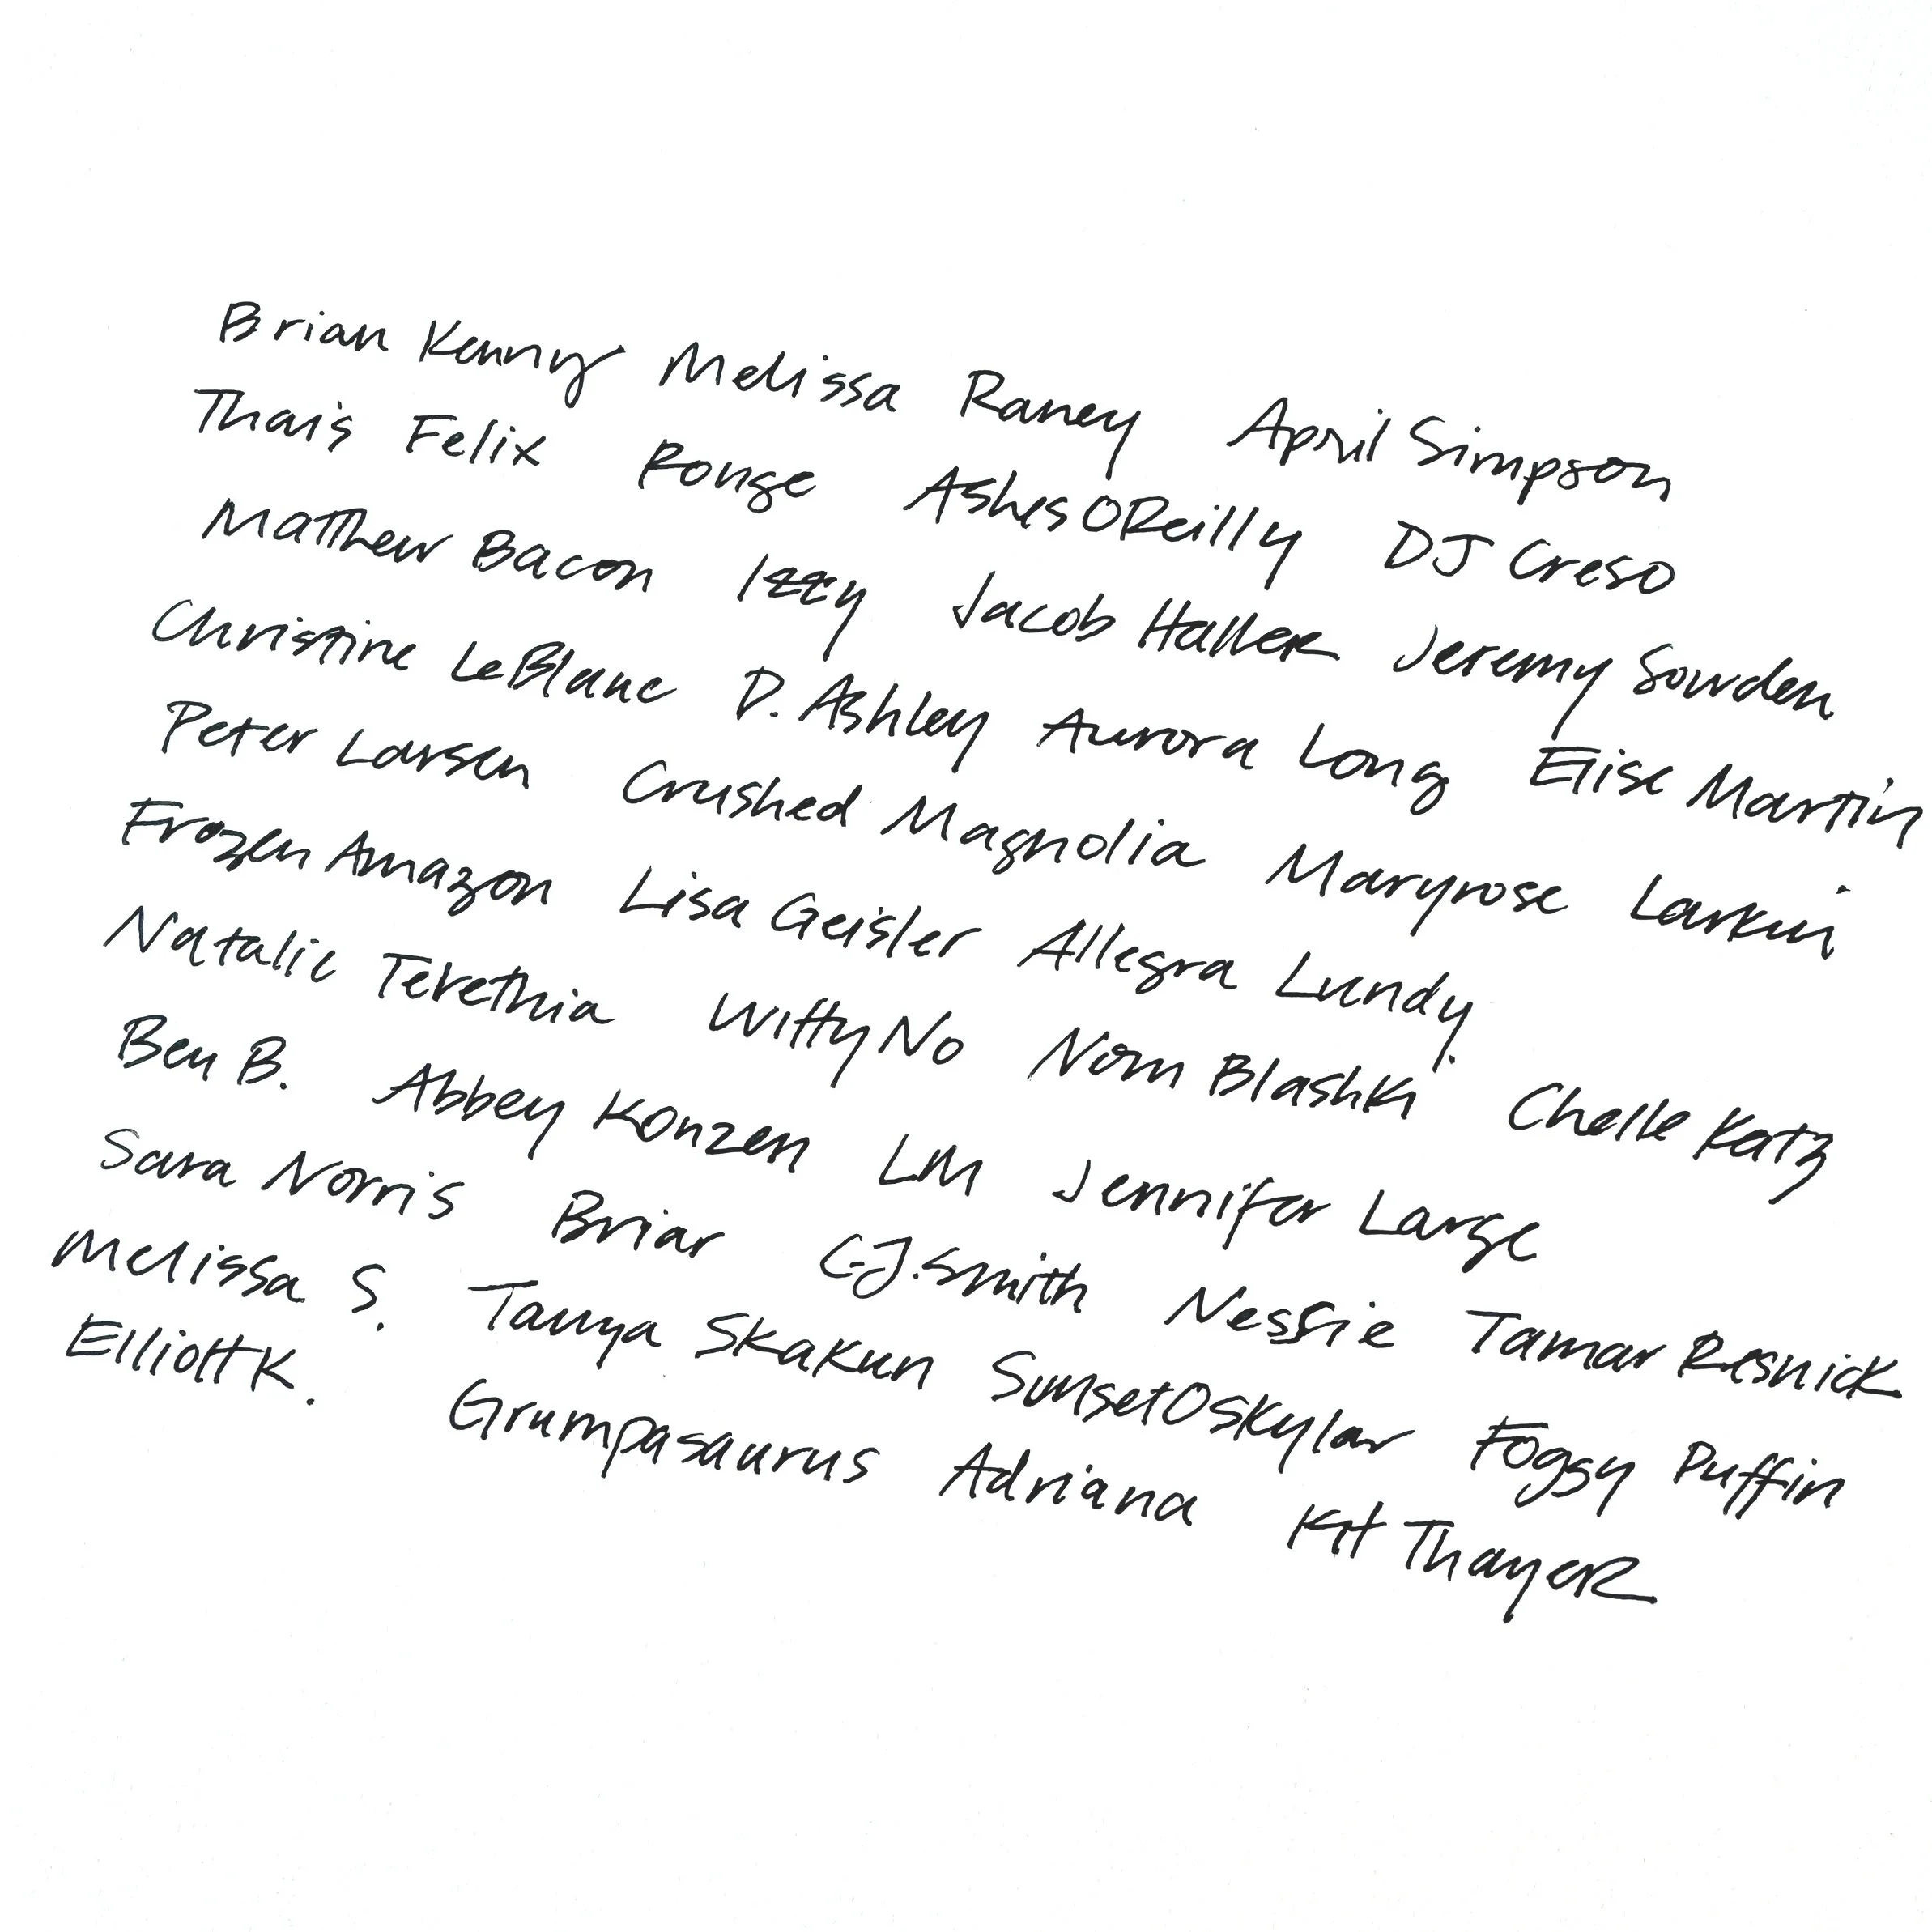 Brian Kenny Melissa Raney April Simpson
Thais Felix Rouge AshesOReilly DJ Creso
Matthew Bacon Izzy Jacob Haller Jeremy Sowden
Christine LeBlanc D. Ashley Aurora Long Elise Martin
Peter Larsen Crushed Magnolia Maryrose Larkin
Frozen Amazon Lisa Geisler Allegra Lundy
Natalie Terethia WittyNo Nom Blashki Chelle Katz
Ben B. Abbey Konzen LM Jennifer Large
Sara Norris Briar C.J. Smith Nessie Tamar Resnick
Melissa S. Tanya Skakun SunsetOskylar Foggy Puffin
Elliott K. Grumpasaurus Adriana Kit Thayer